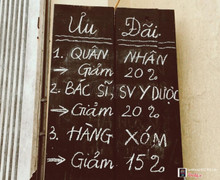 Ưu Đãi
1. QUÂN NHÂN
→ Giảm 20%
2. BÁC SĨ, SV Y DƯỢC
→ Giảm 20%
3. HÀNG XÓM
→ Giảm 15%